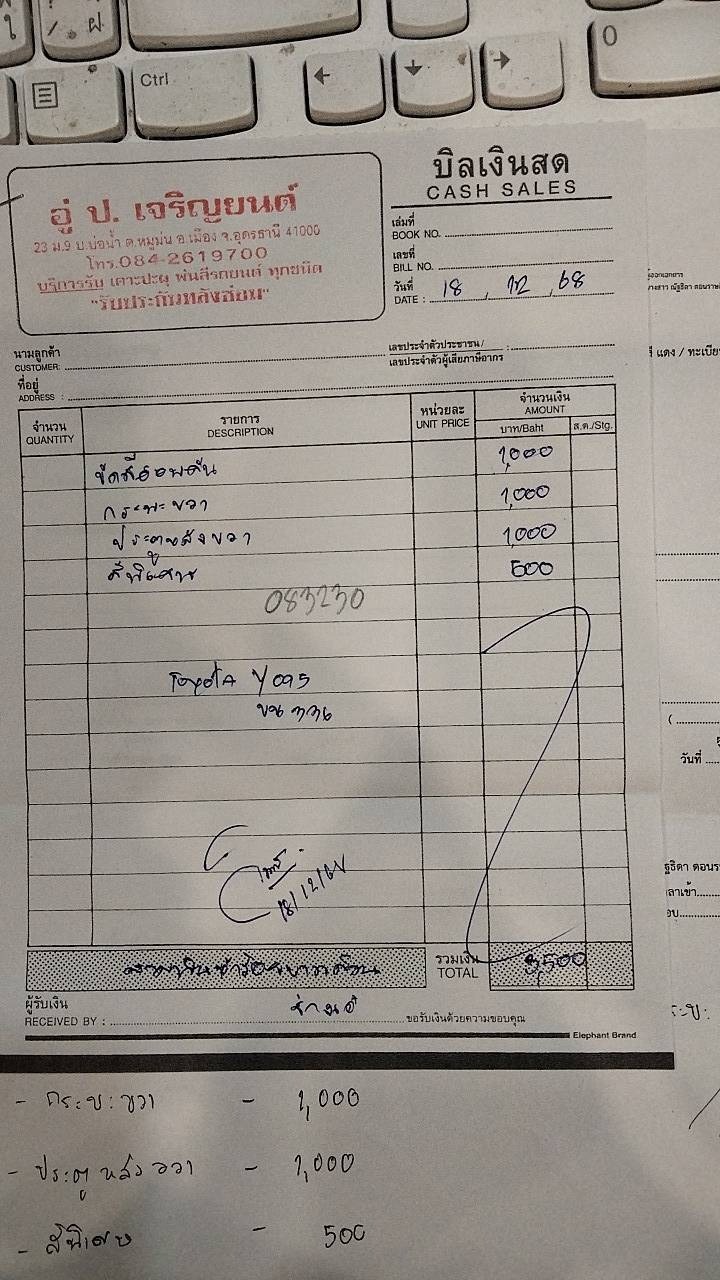 Ctrl
0
บิลเงินสด
CASH SALES
อู่ ป. เจริญยนต์
23 ม.9 บ.บ่อน้ำ ต.หมูม่น อ.เมือง จ.อุดรธานี 41000
โทร.084-2619700
บริการรับ เคาะปะผุ พ่นสีรถยนต์ ทุกชนิด
"รับประกันหลังซ่อม"
เล่มที่
BOOK NO.
เลขที่
BILL NO.
วันที่
DATE : 18 , 12 , 68
นามลูกค้า
CUSTOMER:
เลขประจำตัวประชาชน/
เลขประจำตัวผู้เสียภาษีอากร
ที่อยู่
ADDRESS :
จำนวน
QUANTITY
รายการ
DESCRIPTION
หน่วยละ
UNIT PRICE
จำนวนเงิน
AMOUNT
บาท/Baht
ส.ต./Stg.
ขัดสีรอบคัน 1,000
กระบะขวา 1,000
ประตูหลังขวา 1,000
สีพิเศษ 500
083230
Toyota
336
18/12/68
สามพันห้าร้อยบาทถ้วน
รวมเงิน
TOTAL
3,500
ผู้รับเงิน
RECEIVED BY :
ขอรับเงินด้วยความขอบคุณ
Elephant Brand
- กระบะขวา - 1,000
- ประตูหลังขวา - 1,000
- สีพิเศษ - 500
วันที่